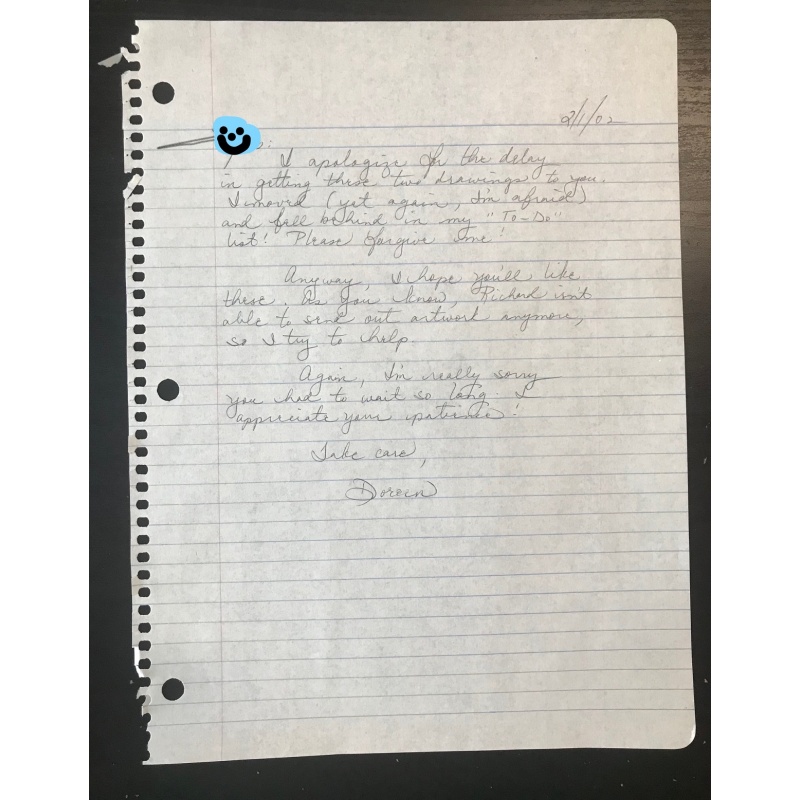 2/1/02
I apologize for the delay
in getting these two drawings to you.
I moved (yet again, I'm afraid)
and fell behind in my "To-Do"
list! Please forgive me!
Anyway, I hope you'll like
these. As you know, Richard isn't
able to send out artwork anymore,
so I try to help.
Again, I'm really sorry
you had to wait so long. I
appreciate your patience!
Take care,
Doreen